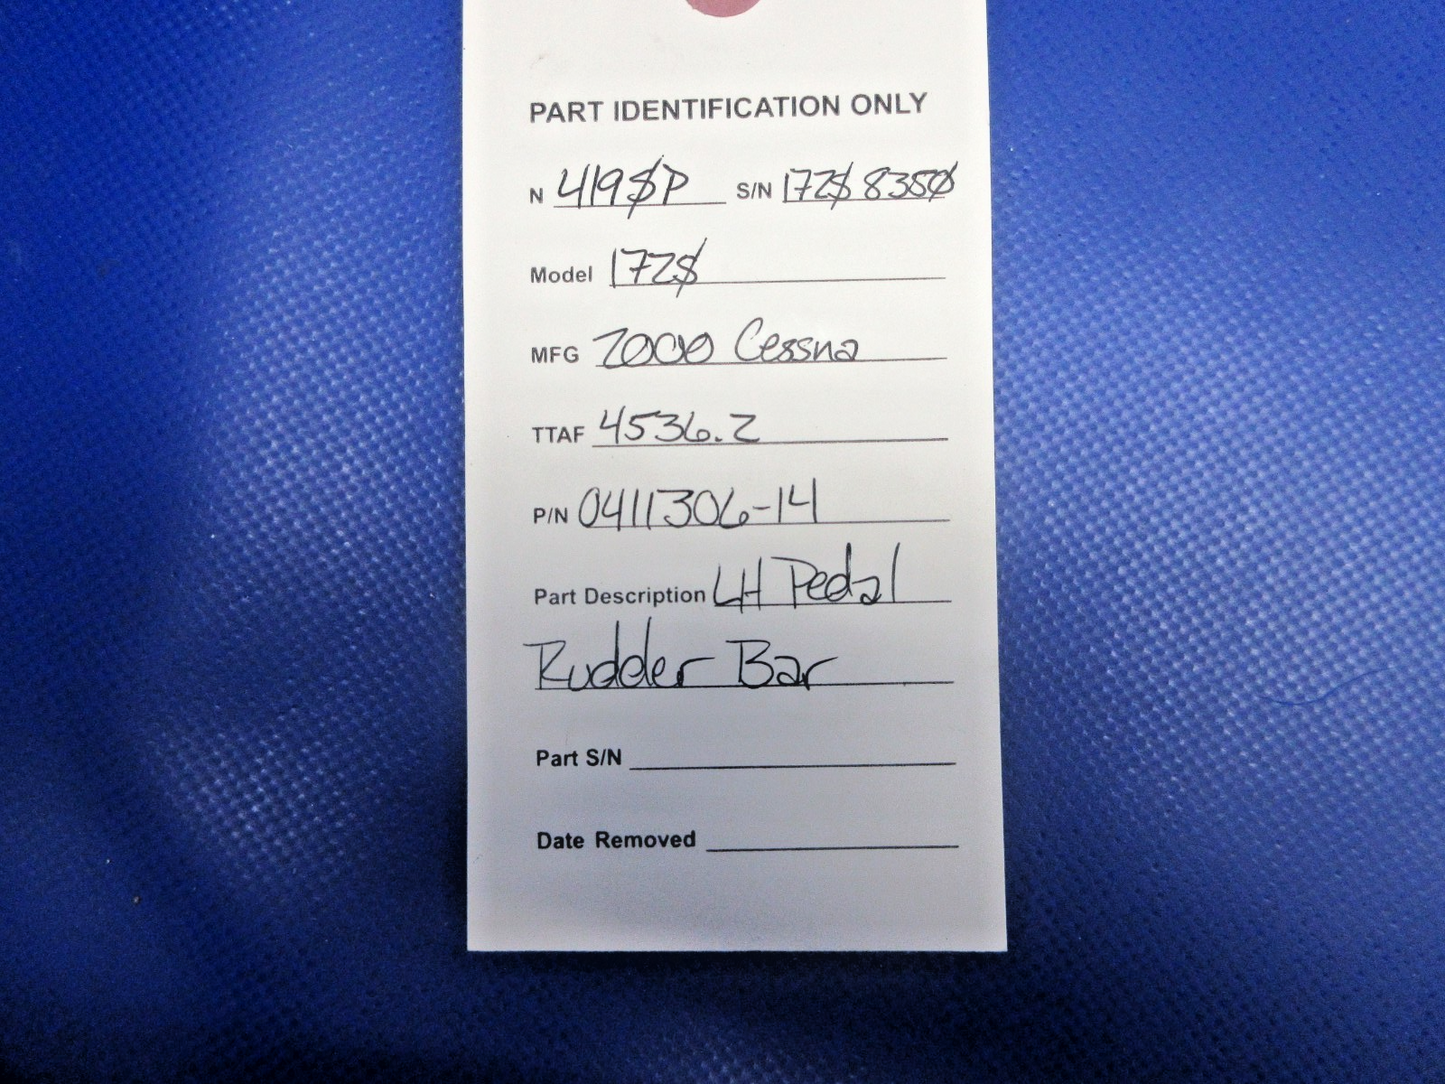 PART IDENTIFICATION ONLY
N 419$P S/N 172$ 8350
Model 172$
MFG 2000 Cessna
TTAF 4536.2
P/N 0411306-14
Part Description LH Pedal
Rudder Bar
Part S/N
Date Removed